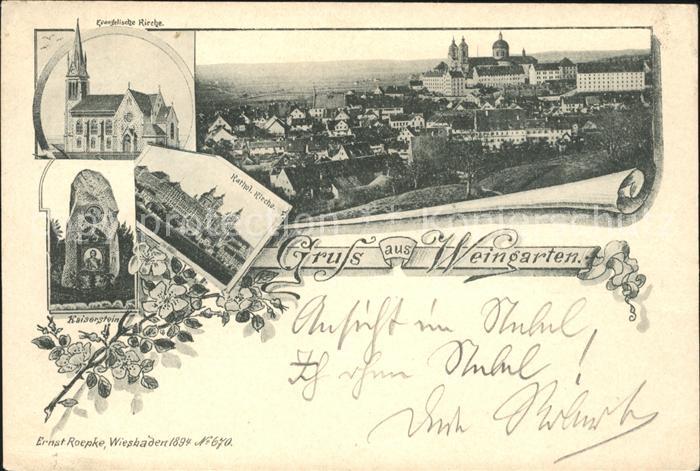 Evangelische Kirche.
Kathol. Kirche.
Kaiserstein
Gruß aus Weingarten.
Ansicht im Nebel,
Ich ohne Nebel!
Ernst Roepke, Wiesbaden 1894 No 670.